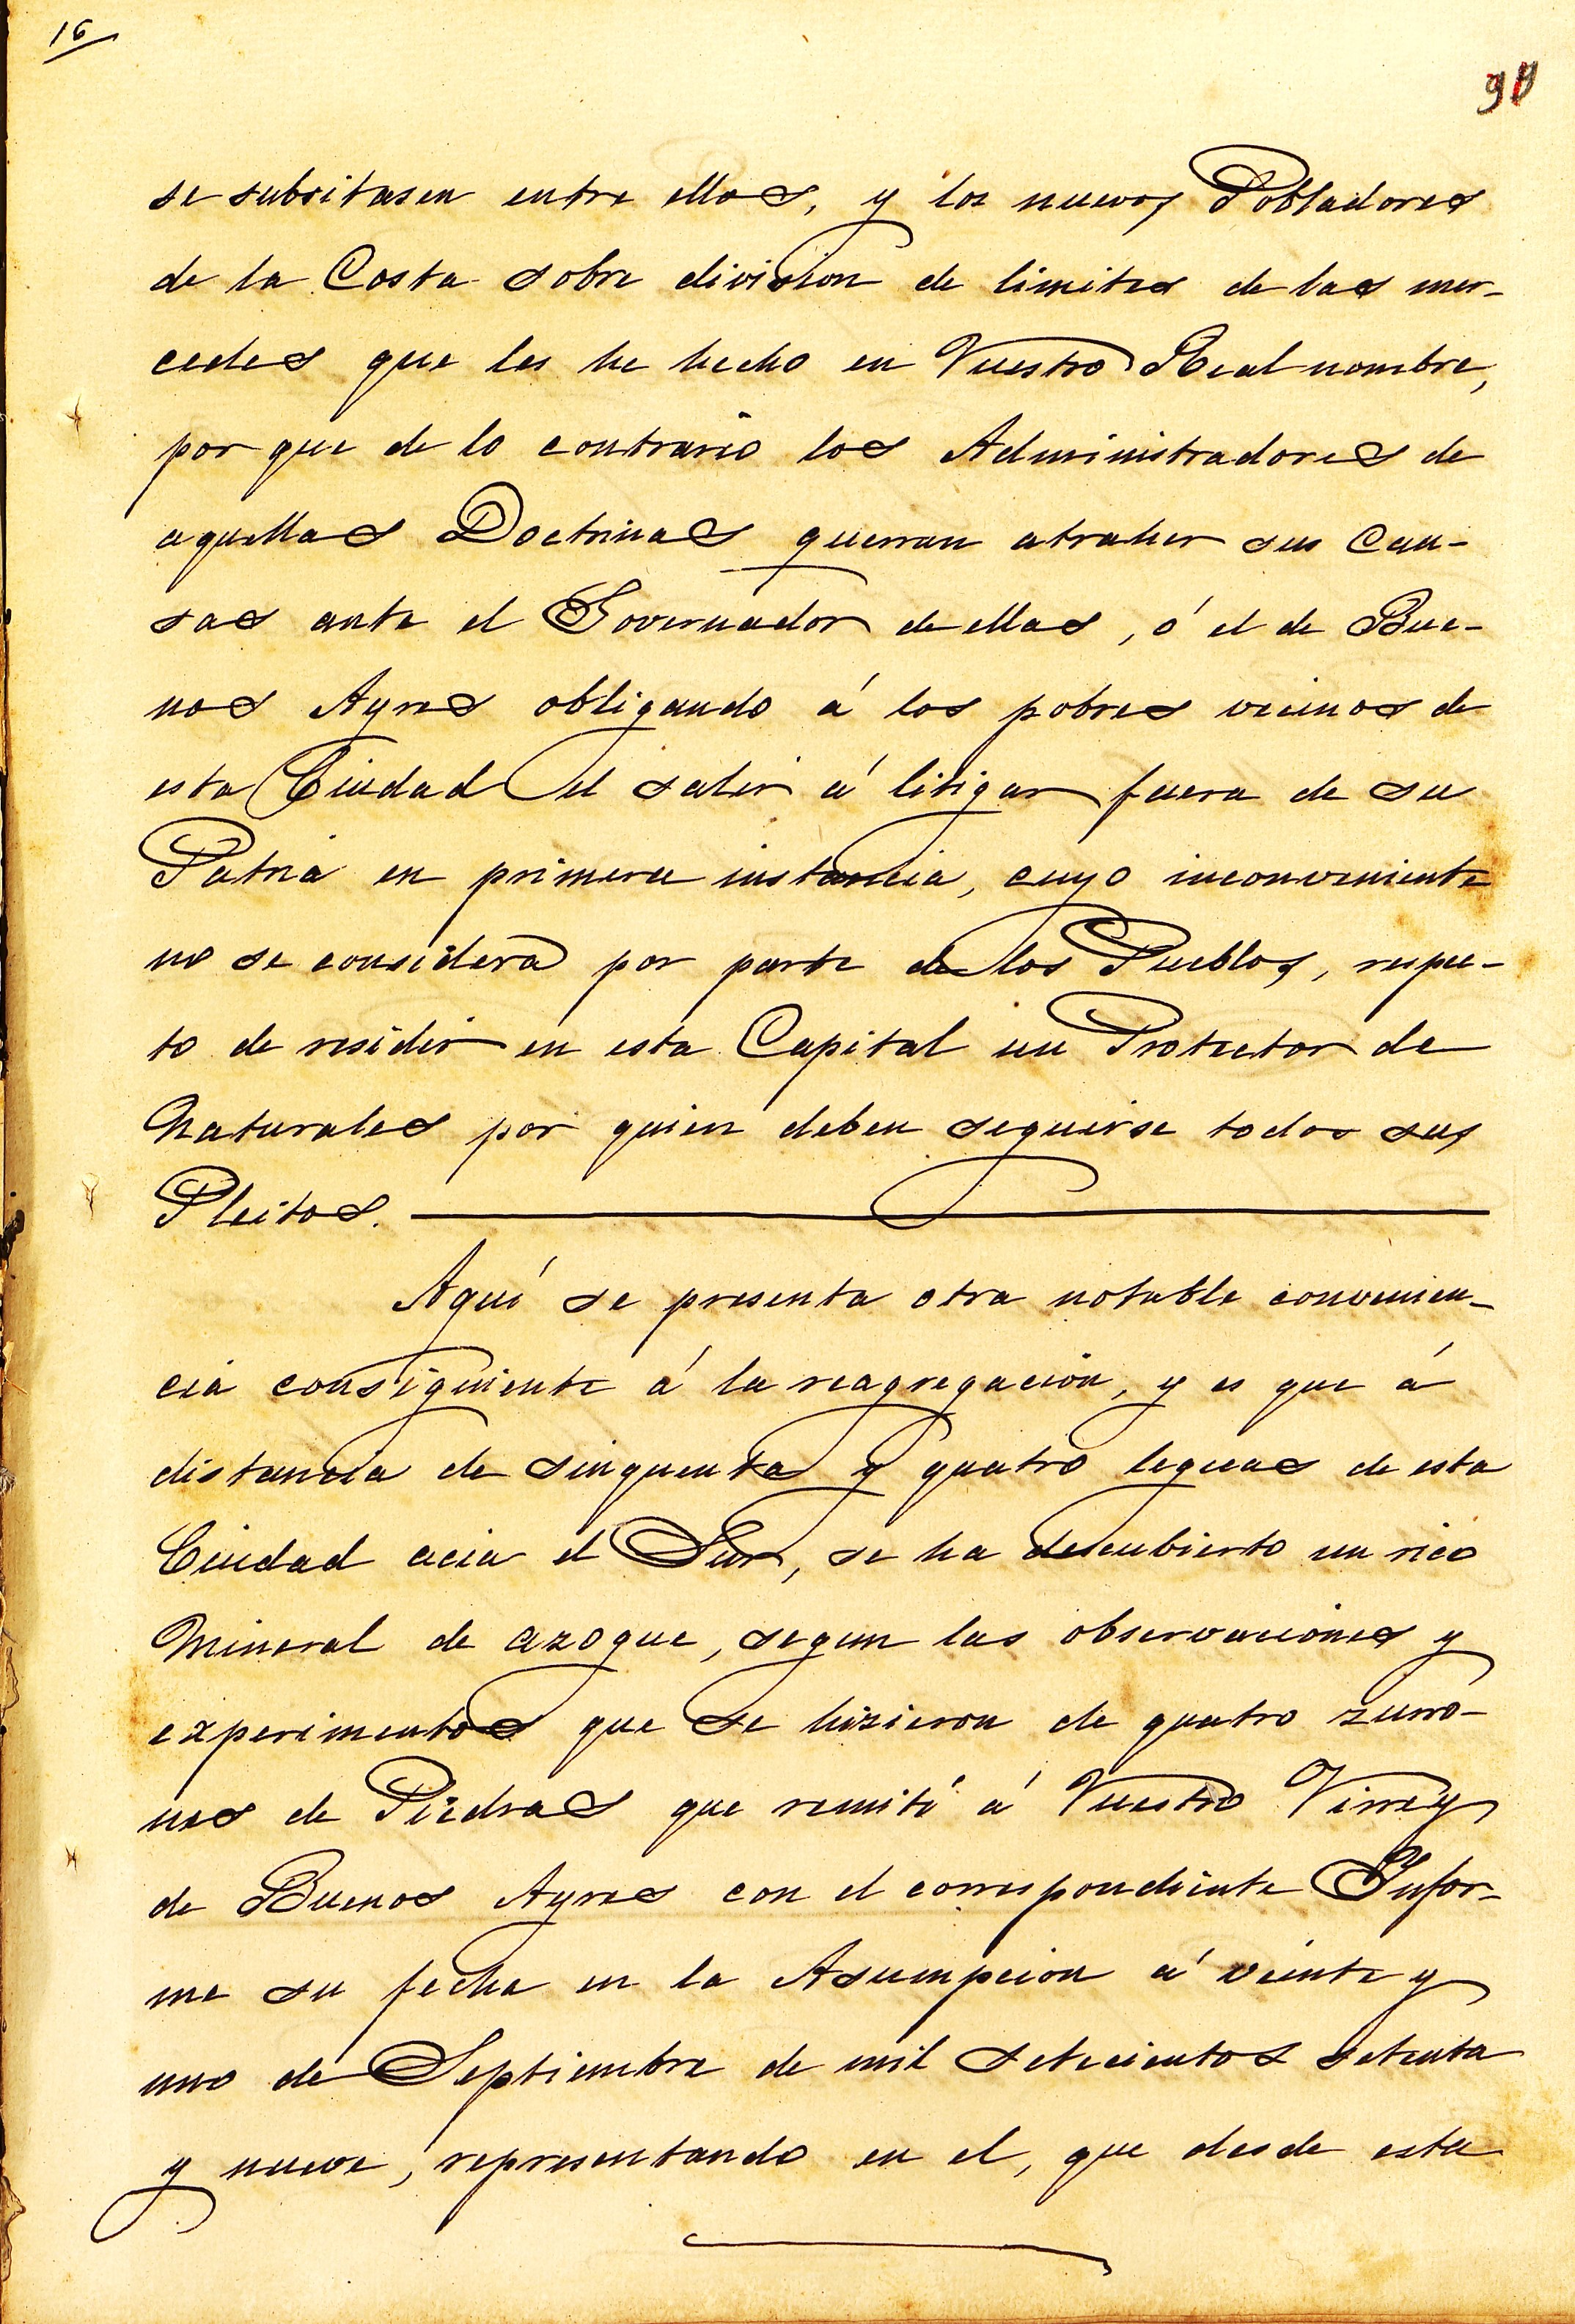 16
90
se subsitasen entre ellos, y los nuevos Pobladores
de la Costa sobre division de limites de las mer-
cedes que les he hecho en Vuestro Real nombre,
por que de lo contrario los Administradores de
aquellas Doctrinas querran atraher sus Cau-
sas ante el Governador de ellas, ó el de Bue-
nos Ayres obligando á los pobres vecinos de
esta Ciudad el salir á litigar fuera de su
Patria en primera instancia, cuyo inconveniente
no se considera por parte de los Pueblos, respec-
to de residir en esta Capital un Protector de
Naturales por quien deben seguirse todos sus
Pleitos.
Aquí se presenta otra notable convenien-
cia consiguiente á la reagregacion, y es que á
distancia de sinquenta y quatro leguas de esta
Ciudad acia el Sur, se ha descubierto un rico
Mineral de azogue, segun las observaciones y
experimentos que se hizieron de quatro zurro-
nes de Piedras que remití á Vuestro Virrey
de Buenos Ayres con el correspondiente Ynfor-
me su fecha en la Asumpcion á veinte y
uno de Septiembre de mil setecientos setenta
y nueve, representando en el, que desde esta